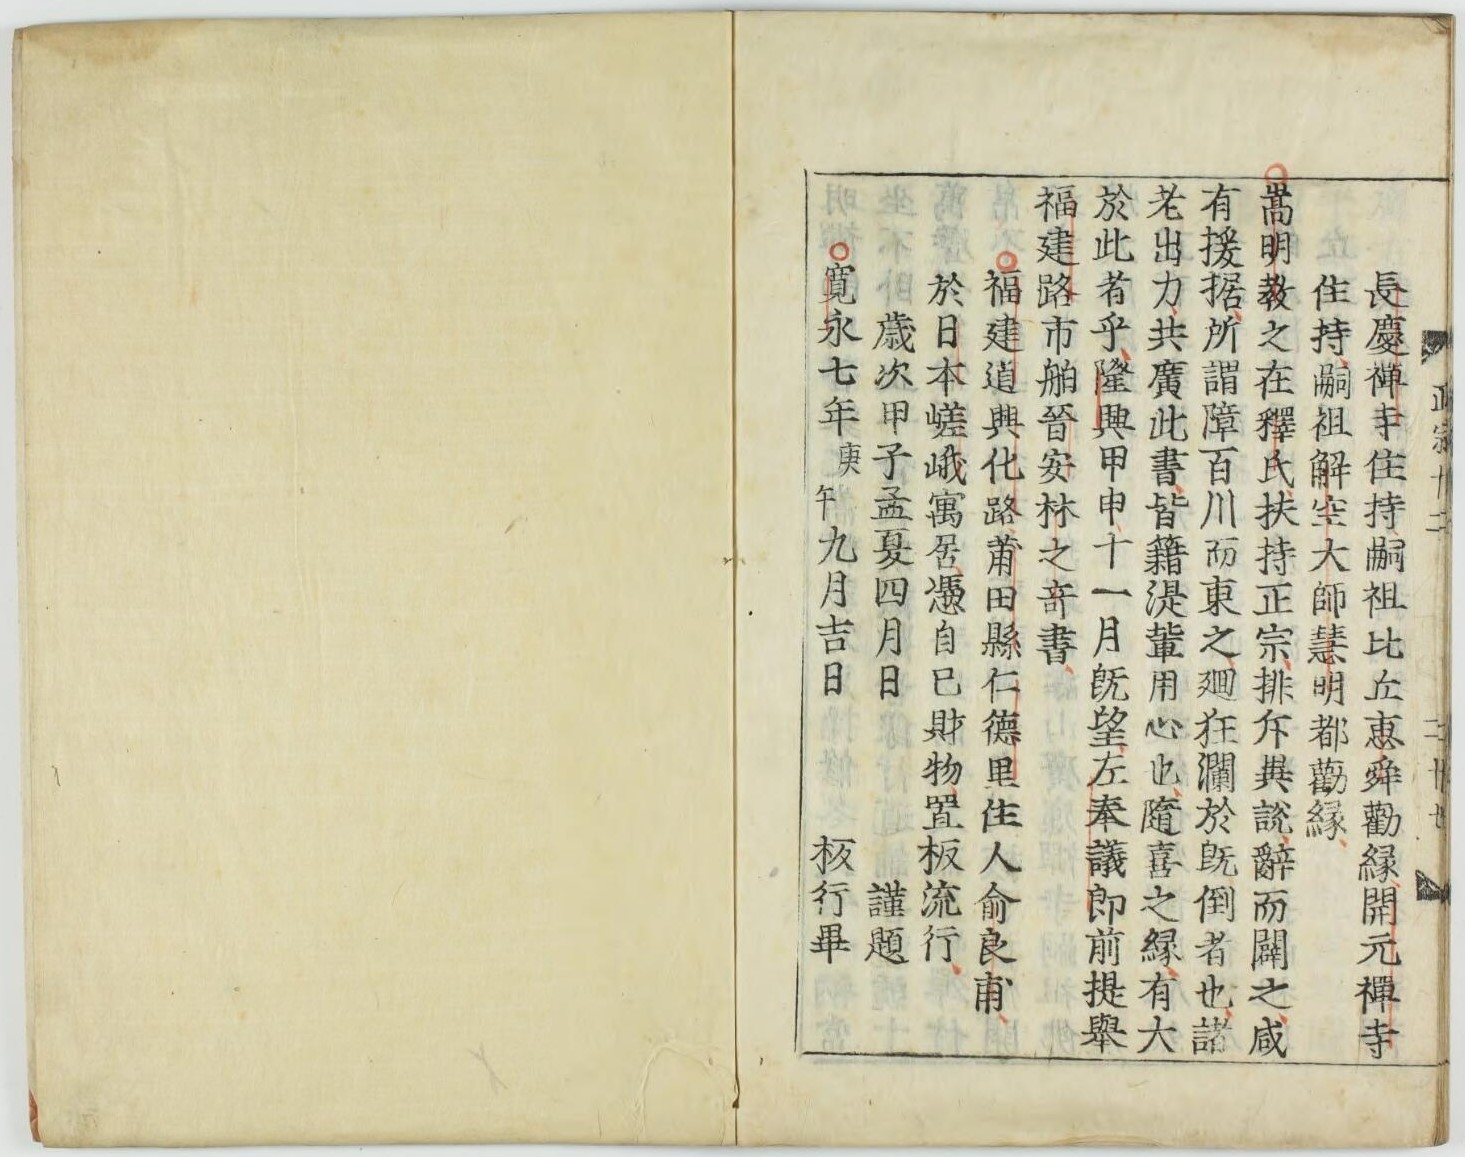 長慶禅寺住持嗣祖比丘恵舜勸縁開元禪寺
住持嗣祖解空大師慧明都勸縁
嵩明教之在釋氏扶持正宗排斥異説辭而闢之咸
有援据所謂障百川而東之廻狂瀾於旣倒者也諸
老出力共廣此書皆籍湜輩用心也隨喜之縁有大
於此者乎隆興甲申十一月旣望左奉議郎前提舉
福建路市舶晉安林之竒書
福建道興化路莆田縣仁德里住人俞良甫
於日本嵯峨寓居憑自己財物置板流行
歲次甲子孟夏四月日 謹題
寛永七年庚午九月吉日 板行畢